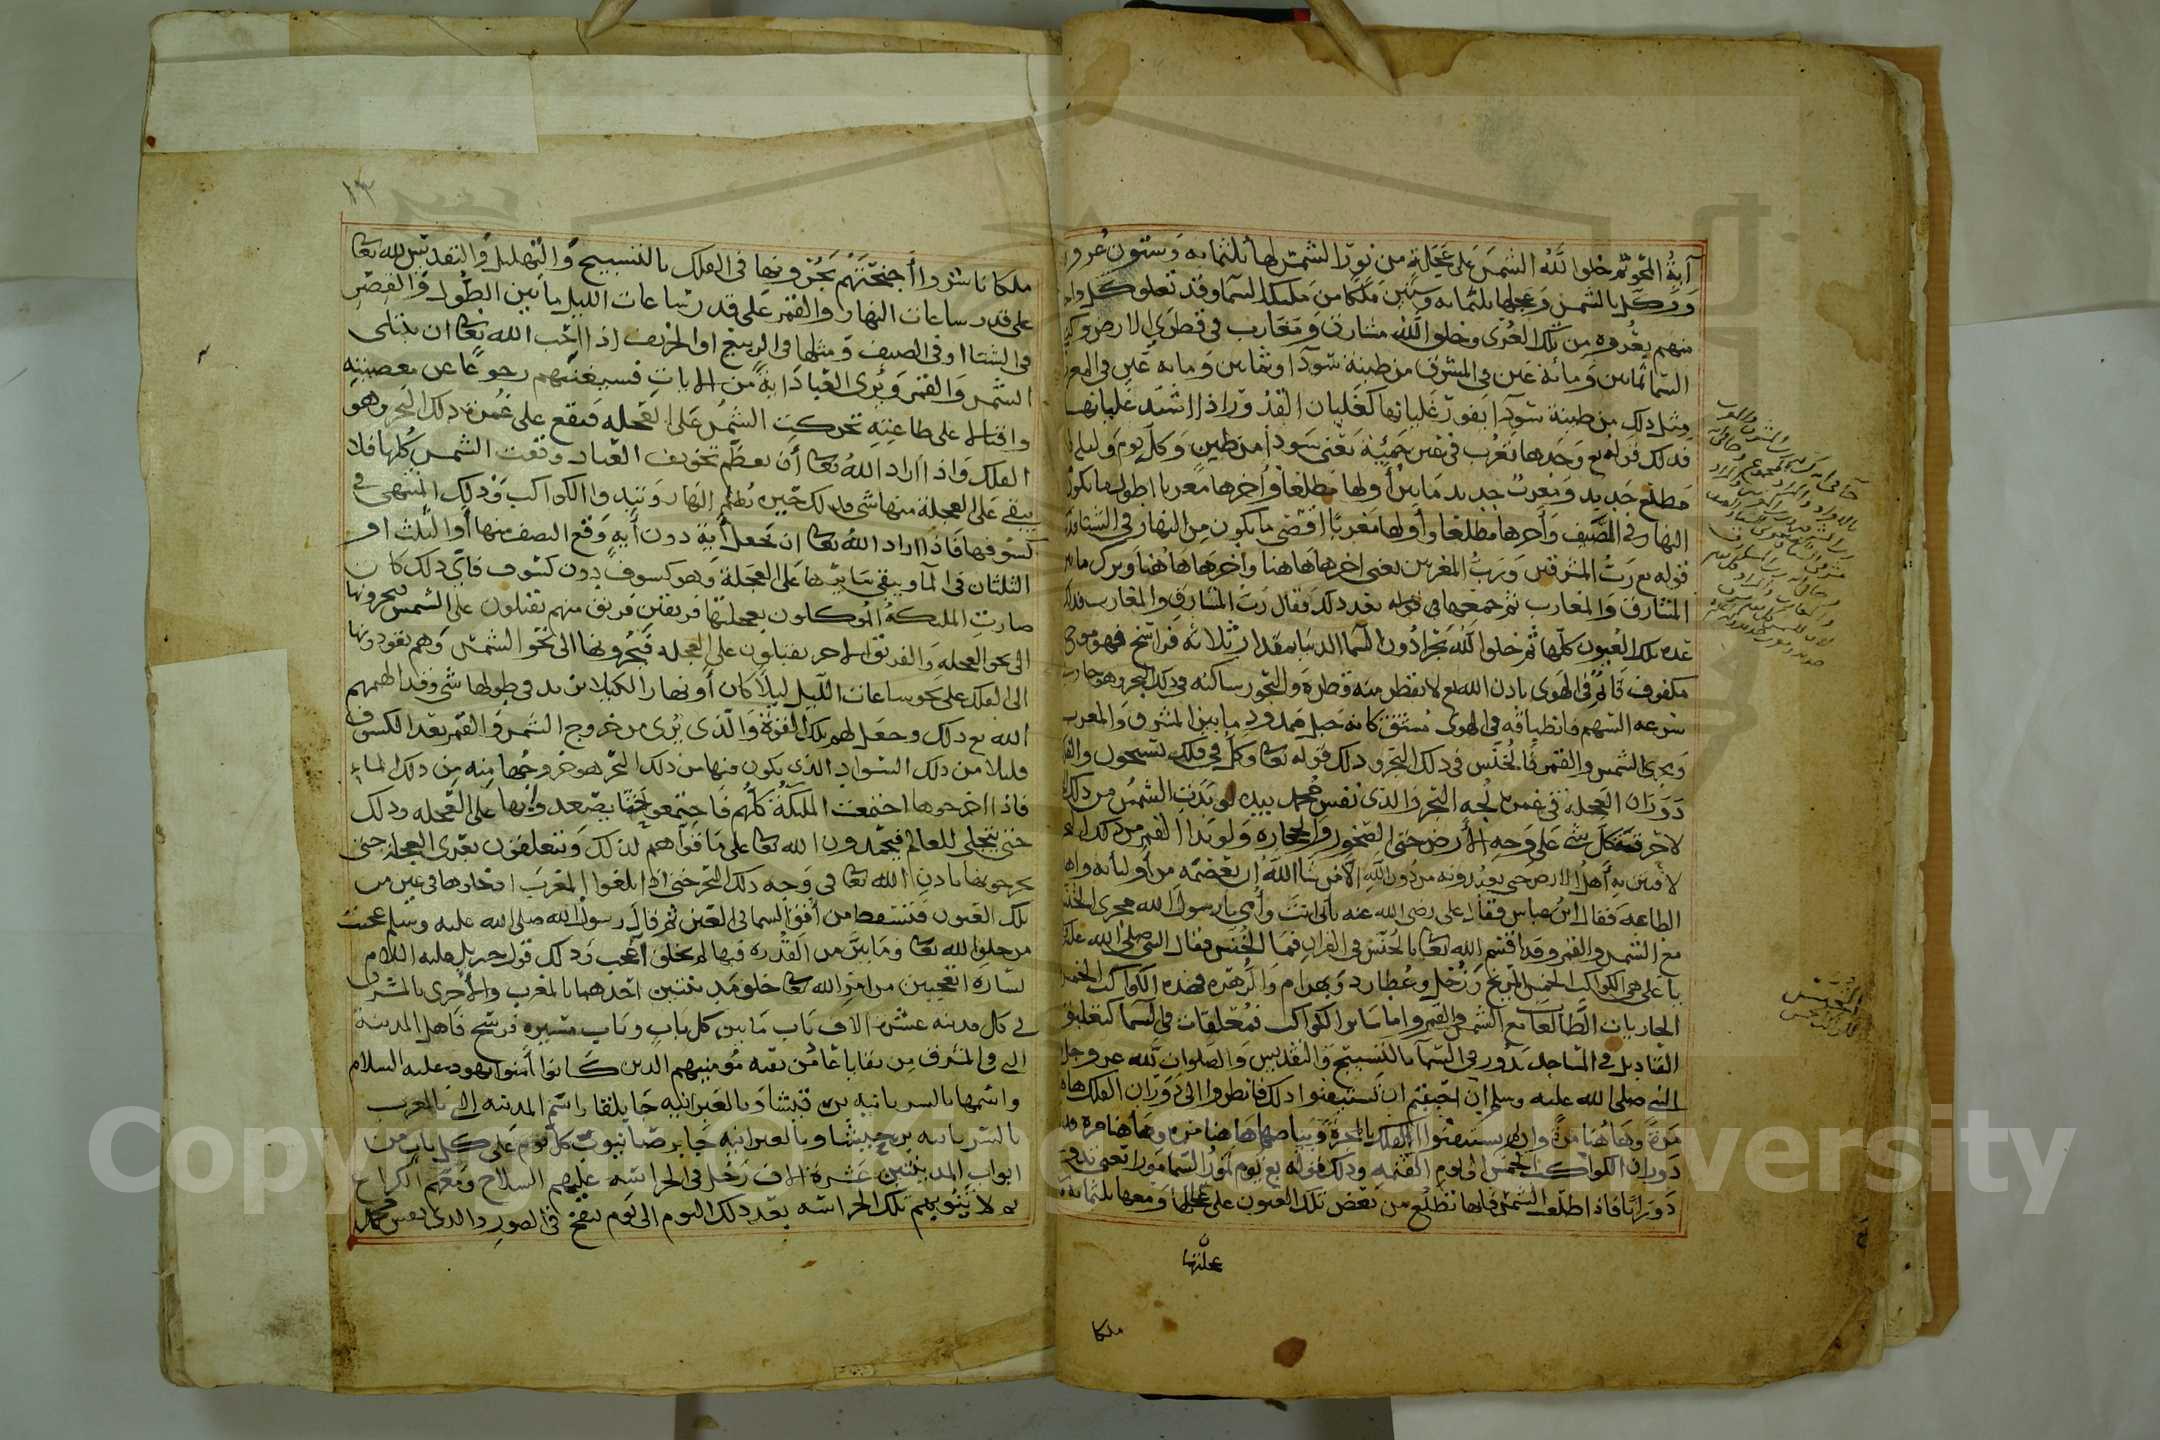 آية المحو ثم خلق الله الشمس على عجلة من نور الشمس لها ثلثمائة وستون عروة
ووكل بالشمس وعجلها ثلثمائة وستين ملكا من مليكة السما وقد تعلق كل واحد
منهم بعروة من تلك العرى وخلق الله مشارق ومغارب في قطري الارض وكنفي
السما ثمانين ومائة عين في المشرق من طينة سودا وثمانين ومائة عين في المغرب
مثل ذلك من طينة سودا يفور غليانها كغليان القدر اذا اشتد غليانها
فذلك قوله تع وجدها تغرب في عين حمئة يعني سودا من طين وكل يوم وليلة لها
مطلع جديد ومغرب جديد ما بين أولها مطلعا وأخرها مغربا اطول ما يكون
النهار في الصيف وأخرها مطلعا وأولها مغربا اقصر ما يكون من النهار في الشتا فذلك
قوله تع رب المشرقين ورب المغربين يعني اخرها هاهنا واخرها هاهنا وترك ما بين
المشارق والمغارب ثم جمعهما في قوله بعد ذلك فقال رب المشارق والمغارب فذلك
عدة تلك العيون كلها ثم خلق الله بحرا دون السما الدنيا مقدار ثلاثة فراسخ فهو موج
مكفوف قائم في الهوى باذن الله تع لا يقطر منه قطرة والبحور ساكنه في ذلك البحر وهو جار
سرعه السهم فانطباقه في الهوى مستو كانه حبل ممدود ما بين المشرق والمغرب
وتجرى الشمس والقمر والخنس في ذلك البحر وذلك قوله تعا وكل في فلك يسبحون والفلك
دوران العجلة في غمر لجة البحر والذي نفس محمد بيده لو بدت الشمس من ذلك البحر
لاحرقت كل شي على وجه الأرض حتى الصخور والحجاره ولو بدا القمر من ذلك البحر
لافتتن به أهل الارض حتى يعبدونه من دون الله الا من شا الله ان يعصمه من أوليائه واهل
الطاعه فقال ابن عباس فقال على رضى الله عنه بأبي انت وأمى يا رسول الله مجرى الخنس
مع الشمس والقمر وقد اقسم الله تعا بالخنس في القران فما الخنس فقال النبي صلى الله عليه
يا علي هي الكواكب الخمس المريخ وزحل وعطارد وبهرام والزهره فهذه الكواكب الخمس
الجاريات الطالعات مع الشمس والقمر واما سائر الكواكب فمعلقات في السما كتعليق
القناديل في المساجد يدور في السما بالتسبيح والتقديس والصلوات لله عز وجل
النبي صلى الله عليه وسلم ان احببتم ان تستبينوا ذلك فانظروا الى دوران الفلك هاهنا
مرة وهاهنا مرة وان لم يستبينوا الفلك بالمجرة وبياضها هاهنا مره وهاهنا مره
دوران الكواكب الخمس الى يوم القيمه وذلك قوله تع يوم تمور السما مورا يعني تدور
دورانا فاذا طلعت الشمس فانها تطلع من بعض تلك العيون على عجلها ومعها ثلثمائة
عجلتها
ملكا
١٣
ملكا ناشروا أجنحتهم يجرونها في الفلك بالتسبيح والتهليل والتقديس لله تعا
على قدر ساعات النهار والقمر على قدر ساعات الليل ما بين الطول والقصر
في الشتا او في الصيف ومثلها في الربيع او الخريف اذا احب الله تعا ان يبتلى
الشمس والقمر ويرى العباد اية من الايات فسيغنيهم رجوعا عن معصيته
واقبالا على طاعته تحركت الشمس على العجله فتقع على غمره ذلك البحر وهو
الفلك واذا اراد الله تعا أن يعظم تخويف العباد وقعت الشمس كلها فلا
يبقى على العجلة منها شى فذلك حين يظلم النهار وتبدوا الكواكب وذلك المنتهى في
كسوفها فاذا اراد الله تعا ان يجعل أية دون أية وقع النصف منها أو الثلث او
الثلثان في الما ويبقى سايرها على العجلة وهو كسوف دون كسوف فاي ذلك كان
صارت المليكة الموكلون بعجلتها فرقتين فريق منهم يقبلون على الشمس فيجرونها
الى نحو العجله والفريق الاخر يقبلون على العجله فيجرونها الى نحو الشمس وهم يقودونها
الى الفلك على نحو ساعات الليل ليلا كان أو نهارا لكيلا يزيد في طولها شي وقد الهمهم
الله تع ذلك وجعل لهم تلك القوة والذى يرى من خروج الشمس والقمر بعد الكسوف
قليلا من ذلك السواد الذي يكون منها من ذلك البحر هو خروجها منه من ذلك الماء
فاذا اخرجوها اجتمعت المليكة كلهم فاجتمعوا حتى يصعدونها على العجله وذلك
حتى يتجلى للعالم فيحمدون الله تعا على ما قواهم لذلك ويتعلقون بعرى العجله حتى
يجرونها باذن الله تعا في وجه ذلك البحر حتى اذا بلغوا المغرب ادخلوها في عين من
تلك العيون فتسقط من أفق السما في العين ثم قال رسول الله صلى الله عليه وسلم عجبت
من خلق الله تعا وما بين من القدره فيها لم يخلق أعجب وذلك قول جبريل عليه السلام
لسارة اتعجبين من امر الله تعا خلق مدينتين احدهما بالمغرب والأخرى بالمشرق
في كل مدينه عشرة الاف باب ما بين كل باب وباب مسيرة فرسخ فاهل المدينة
التي في المشرق من بقايا عاد من بقيه مؤمنيهم الذين كانوا أمنوا بهود عليه السلام
واسمها بالسريانيه برقيشا وبالعبرانيه جابلقا واسم المدينه التي بالمغرب
بالسريانيه برجيشا وبالعبرانيه جابرصا ينوب كل يوم على كل باب من
ابواب المدينتين عشرة الاف رجل في الحراسه عليهم السلاح ومعهم الكراع
لا ينوبهم تلك الحراسه بعد ذلك اليوم الى يوم ينفخ في الصور والذى نفس محمد
Copyright © King Saud University